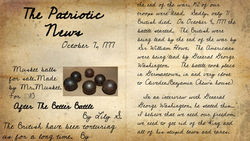 The Patriotic
News
October 7, 1777
Musket balls
for sale. Made
by Mr. Musket.
For
After The Battle
By Lily S.
The British have been torturing
us for a long time. By
the end of the war, of our
troops were dead. Sadly, only
British died. On October 4, 1777 the
battle started. The British were
being lead by the end of the war by
Sir William Howe. The Americans
were being lead by General George
Washington. The battle took place
in Germantown, in and very close
to Cliveden/Benjamin (Chew's house)
In an interview with General
George Washington, he stated this...
I believe that we need our freedom,
we need to get rid of the King and
all of his stupid laws and taxes.